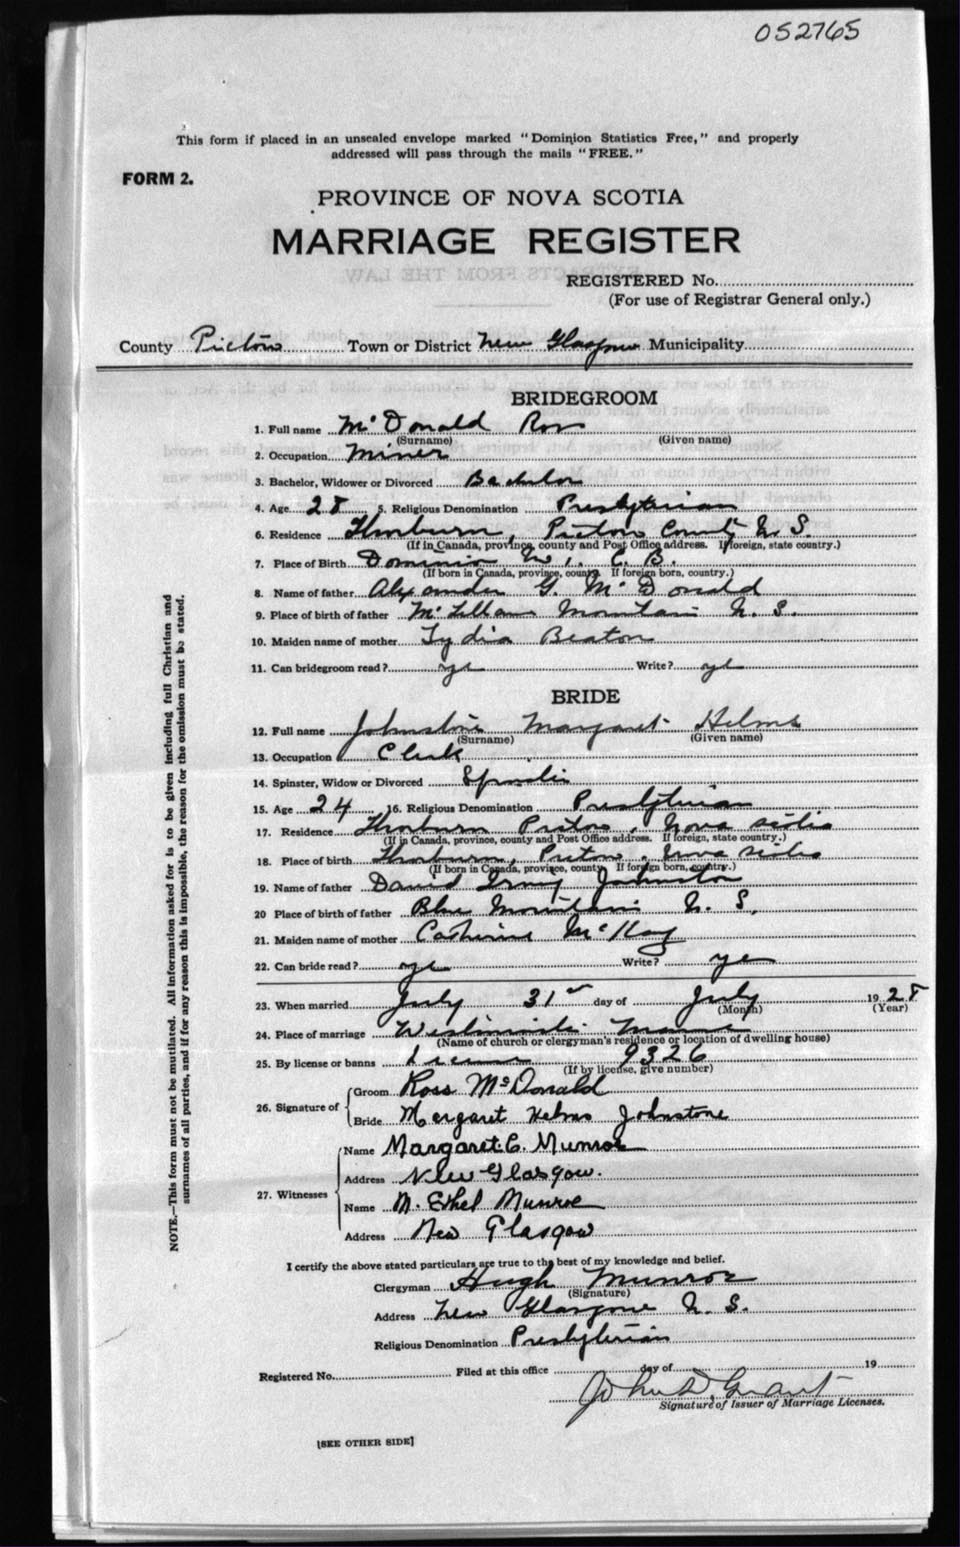 052765
This form if placed in an unsealed envelope marked "Dominion Statistics Free," and properly
addressed will pass through the mails "FREE."
FORM 2.
PROVINCE OF NOVA SCOTIA
MARRIAGE REGISTER
REGISTERED No.
(For use of Registrar General only.)
County Pictou Town or District New Glasgow Municipality
BRIDEGROOM
1. Full name McDonald Ross
(Surname) (Given name)
2. Occupation Miner
3. Bachelor, Widower or Divorced Bachelor
4. Age 28 5. Religious Denomination Presbyterian
6. Residence Thorburn, Pictou County N. S.
(If in Canada, province, county and Post Office address. If foreign, state country.)
7. Place of Birth Dominion No. 1. C. B.
(If born in Canada, province, county. If foreign born, country.)
8. Name of father Alexander G. McDonald
9. Place of birth of father McLellans Mountain N. S.
10. Maiden name of mother Lydia Beaton
11. Can bridegroom read? yes Write? yes
BRIDE
12. Full name Johnstone Margaret Helms
(Surname) (Given name)
13. Occupation Clerk
14. Spinster, Widow or Divorced Spinster
15. Age 24 16. Religious Denomination Presbyterian
17. Residence Thorburn Pictou, Nova Scotia
(If in Canada, province, county and Post Office address. If foreign, state country.)
18. Place of birth Thorburn, Pictou, Nova Scotia
(If born in Canada, province, county. If foreign born, country.)
19. Name of father David Irving Johnston
20 Place of birth of father Blue Mountain N. S.
21. Maiden name of mother Catherine McKay
22. Can bride read? yes Write? yes
23. When married July 31st day of July 1928
(Month) (Year)
24. Place of marriage Westminster Manse
(Name of church or clergyman's residence or location of dwelling house)
25. By license or banns License 9326
(If by license, give number)
26. Signature of Groom Ross McDonald
Bride Margaret Helms Johnstone
27. Witnesses Name Margaret C. Munroe
Address New Glasgow.
Name M. Ethel Munroe
Address New Glasgow
I certify the above stated particulars are true to the best of my knowledge and belief.
Clergyman Hugh Munroe
(Signature)
Address New Glasgow N. S.
Religious Denomination Presbyterian
Registered No. Filed at this office day of 19
John D. Grant
Signature of Issuer of Marriage Licenses.
[SEE OTHER SIDE]
NOTE.—This form must not be mutilated. All information asked for is to be given including full Christian and
surnames of all parties, and if for any reason this is impossible, the reason for the omission must be stated.